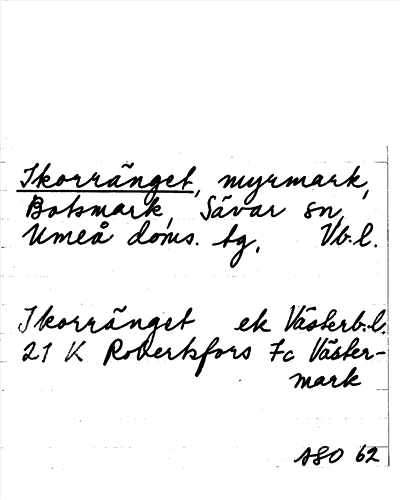 Ikorränget, myrmark,
Botsmark, Sävar sn,
Umeå doms. tg. Vb.l.
Ikorränget ek Västerb.l.
21 K Robertsfors 7c Väster-
mark
ASO 62